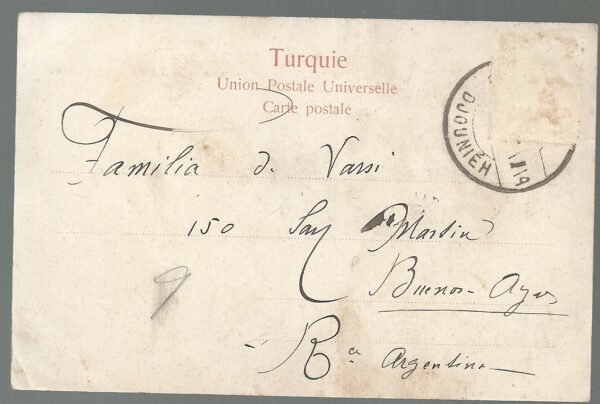 Turquie
Union Postale Universelle
Carte postale
DJOUNIÉH
14
Familia de Varsi
150 San Martin
Buenos-Ayres
Rca Argentina
9